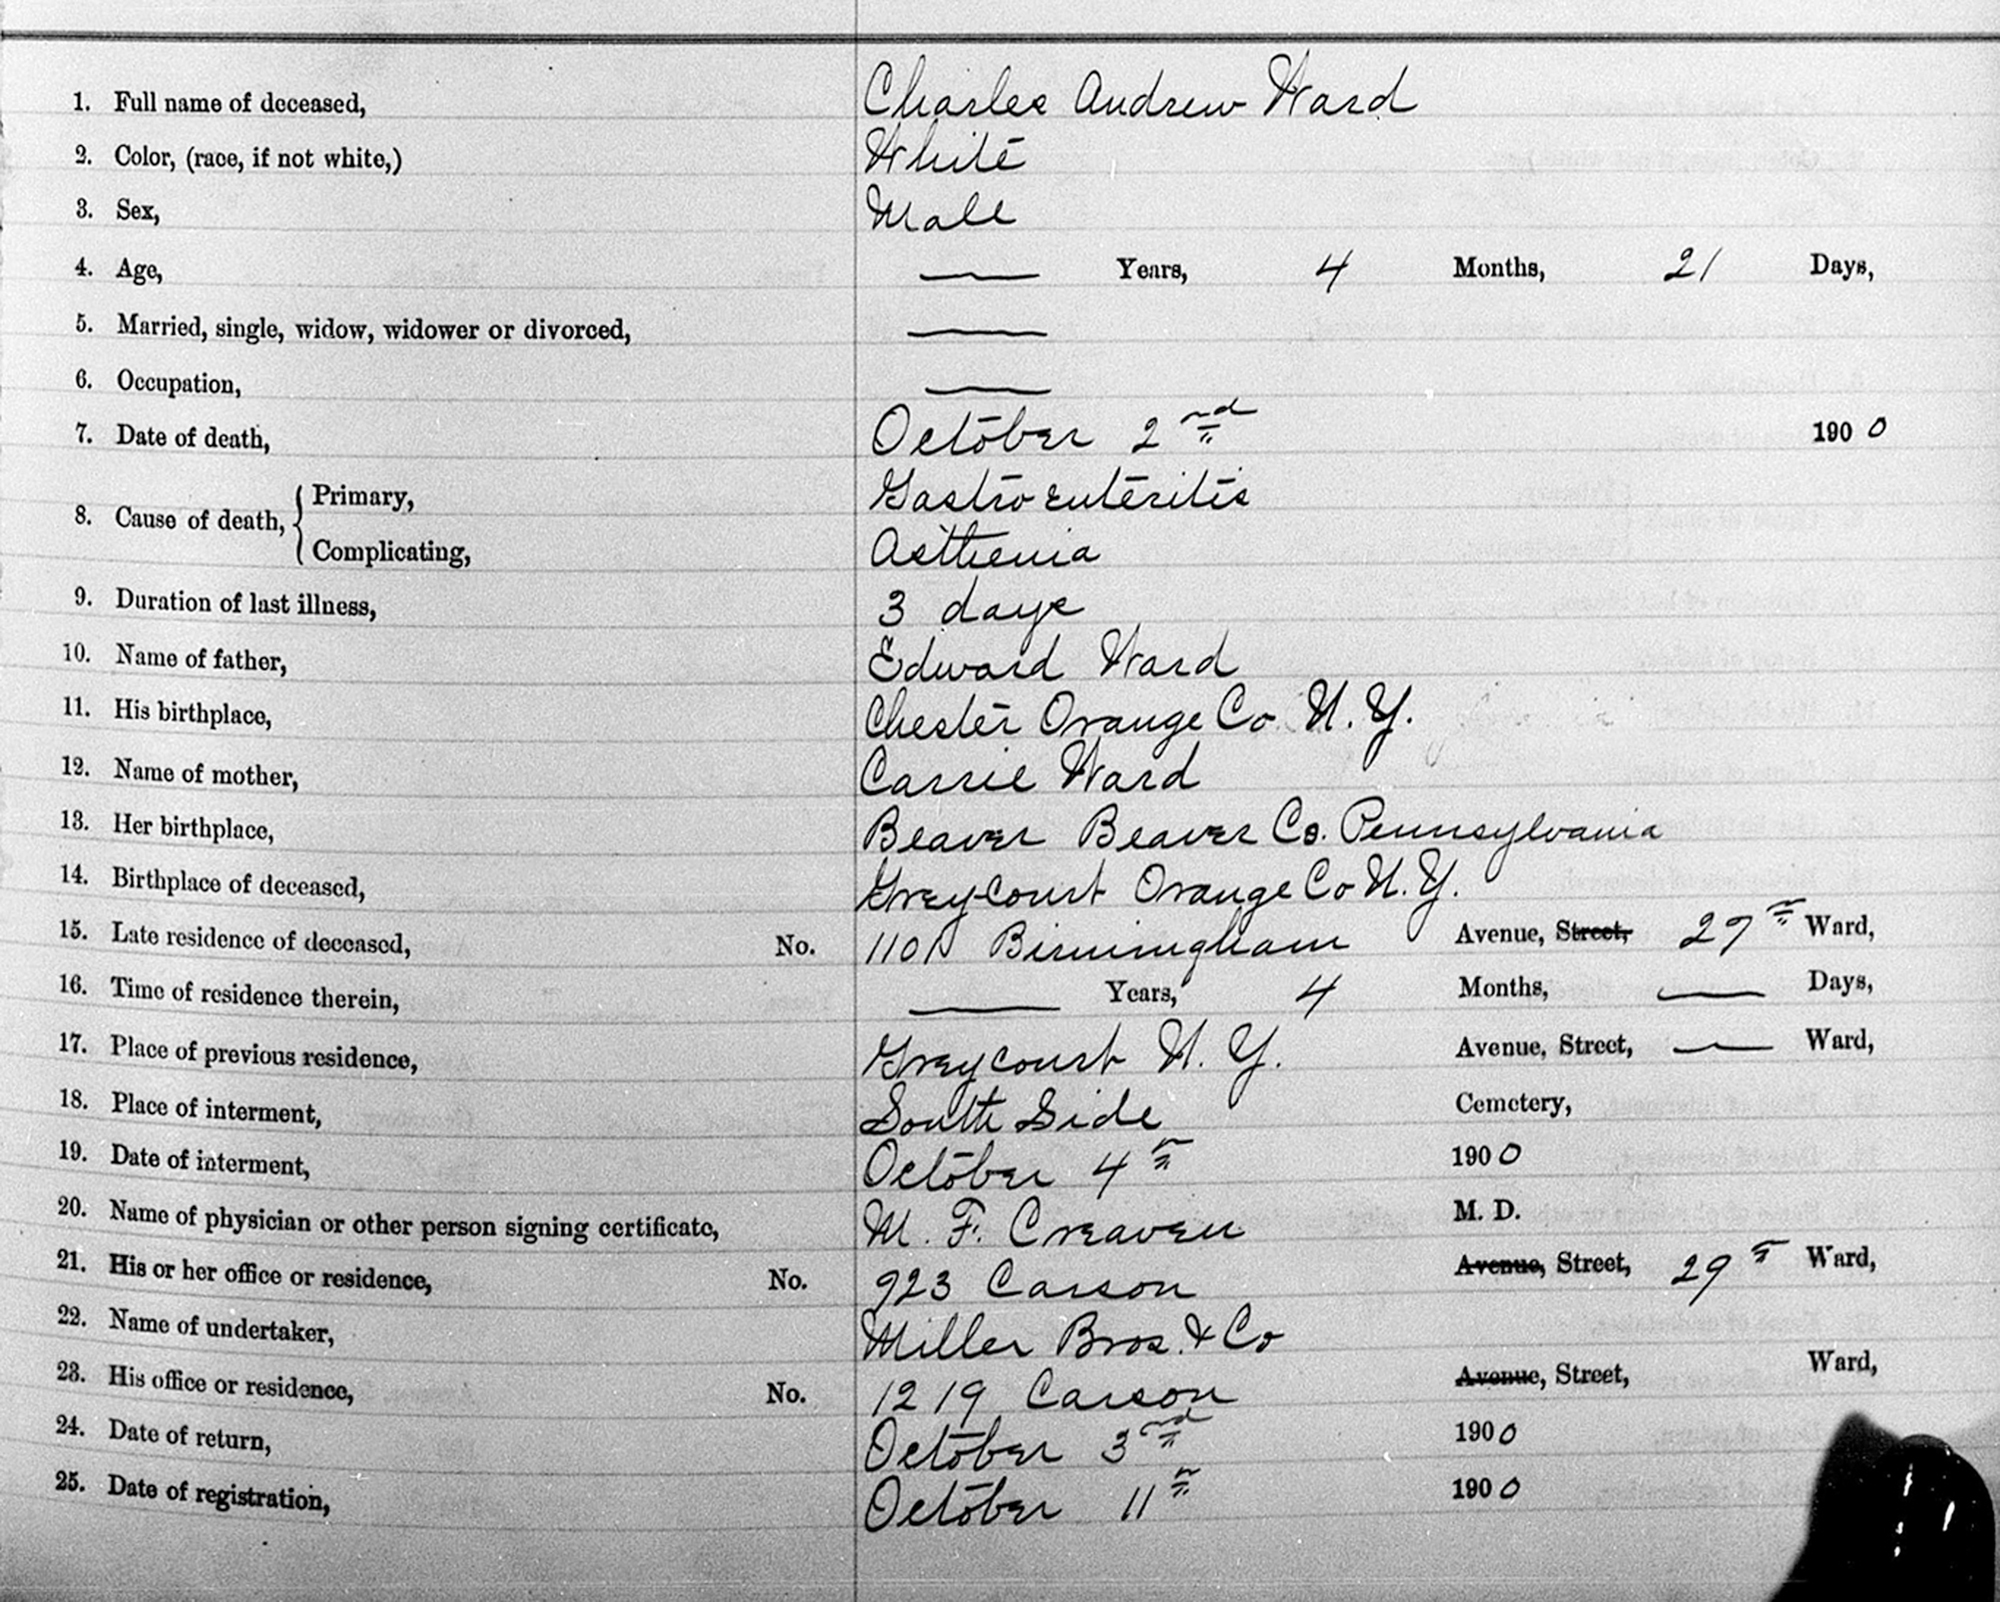 1. Full name of deceased, Charles Andrew Ward
2. Color, (race, if not white,) White
3. Sex, Male
4. Age, — Years, 4 Months, 21 Days,
5. Married, single, widow, widower or divorced, —
6. Occupation, —
7. Date of death, October 2nd 1900
8. Cause of death, { Primary, Gastro enteritis
Complicating, Asthenia
9. Duration of last illness, 3 days
10. Name of father, Edward Ward
11. His birthplace, Chester Orange Co N.Y.
12. Name of mother, Carrie Ward
13. Her birthplace, Beaver Beaver Co. Pennsylvania
14. Birthplace of deceased, Greycourt Orange Co N.Y.
15. Late residence of deceased, No. 110 Birmingham Avenue, Street, 27th Ward,
16. Time of residence therein, — Years, 4 Months, — Days,
17. Place of previous residence, Greycourt N.Y. Avenue, Street, — Ward,
18. Place of interment, South Side Cemetery,
19. Date of interment, October 4th 1900
20. Name of physician or other person signing certificate, M. F. Creaven M. D.
21. His or her office or residence, No. 923 Carson Avenue, Street, 29th Ward,
22. Name of undertaker, Miller Bros. & Co
23. His office or residence, No. 1219 Carson Avenue, Street, Ward,
24. Date of return, October 3rd 1900
25. Date of registration, October 11th 1900